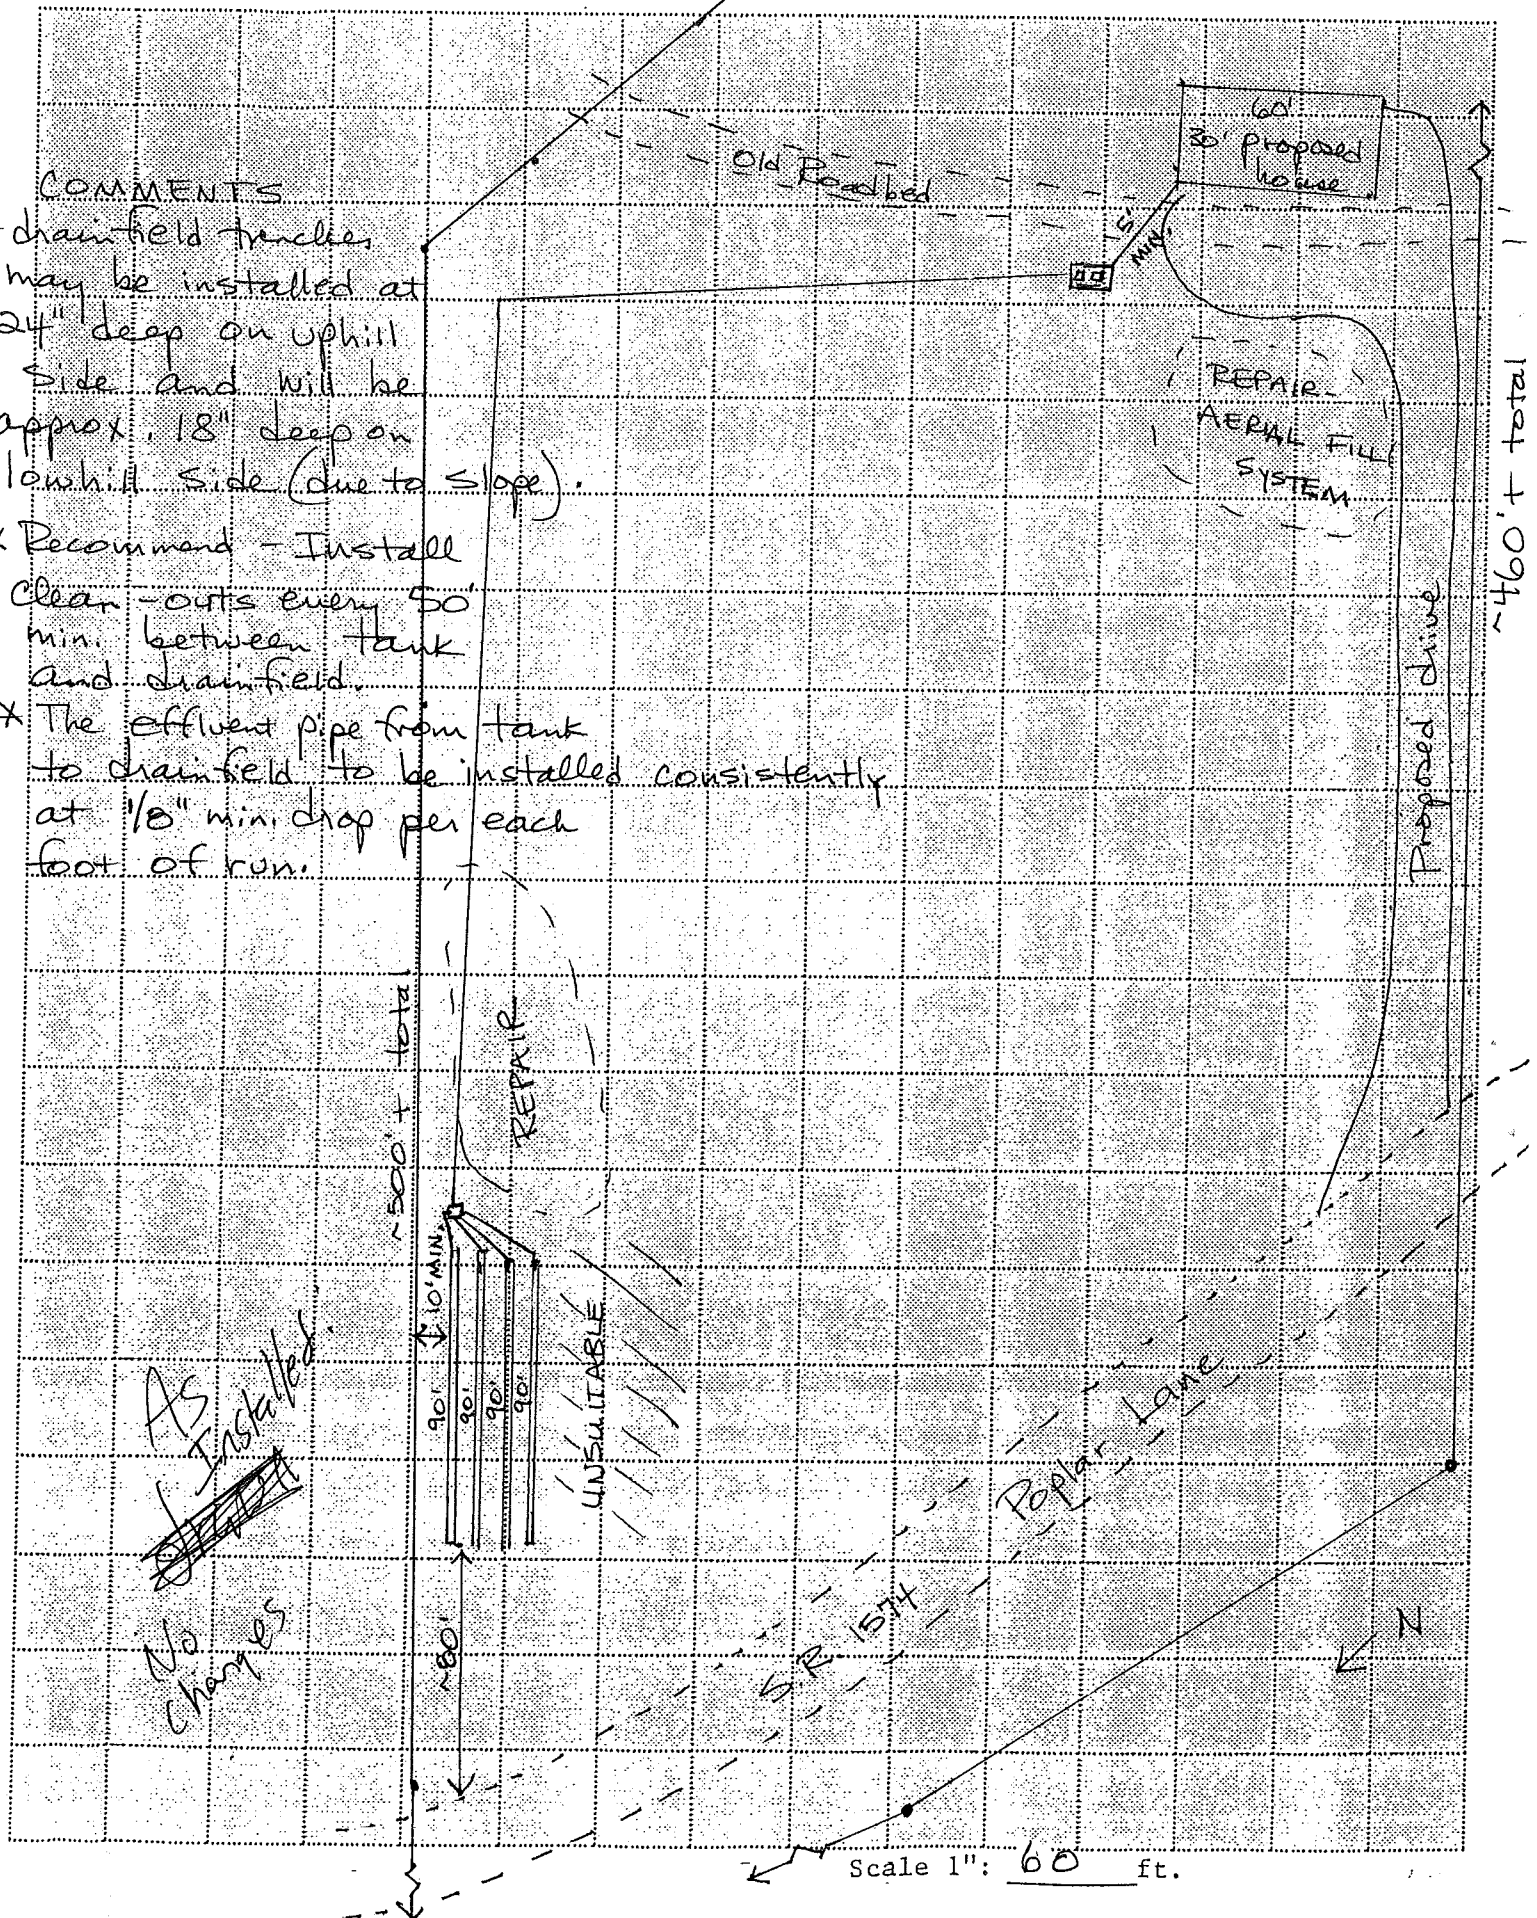 COMMENTS
- drainfield trenches
may be installed at
24" deep on uphill
side and will be
approx. 18" deep on
lowhill side (due to slope).
* Recommend - Install
clean-outs every 50'
min. between tank
and drainfield.
* The effluent pipe from tank
to drainfield to be installed consistently
at 1/8" min. drop per each
foot of run.
Old Roadbed
60'
30' proposed
house
5'
MIN.
REPAIR
AERIAL FILL
SYSTEM
~460' + total
Proposed drive
~500' + total
REPAIR
10' MIN.
90'
90'
90'
90'
UNSUITABLE
~80'
As
Installed.
No
changes
Poplar Lane
S.R. 1574
N
Scale 1": 60 ft.